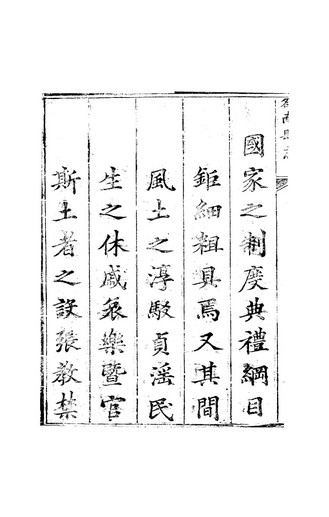 國家之制度典禮綱目
鉅細輯具焉又其間
風土之淳駁貞滛民
生之休戚哀樂暨官
斯土者之設張教禁